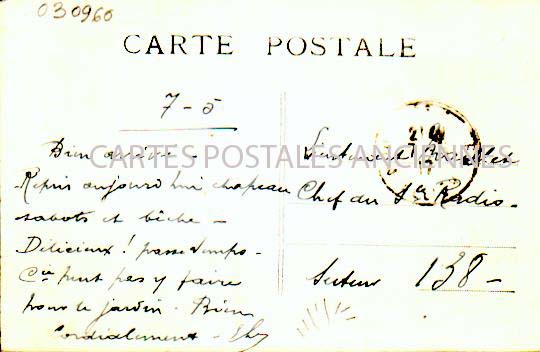 030960
CARTE POSTALE
7-5
CARTES POSTALES ANCIENNES
Bien arrivé -
Repris aujourd'hui chapeau
sabots et bêche -
Délicieux! passe temps -
peut pas y faire
pour le jardin. Bien
Cordialement -
Lieutenant
Chef du Sce Radio -
Secteur 138 -